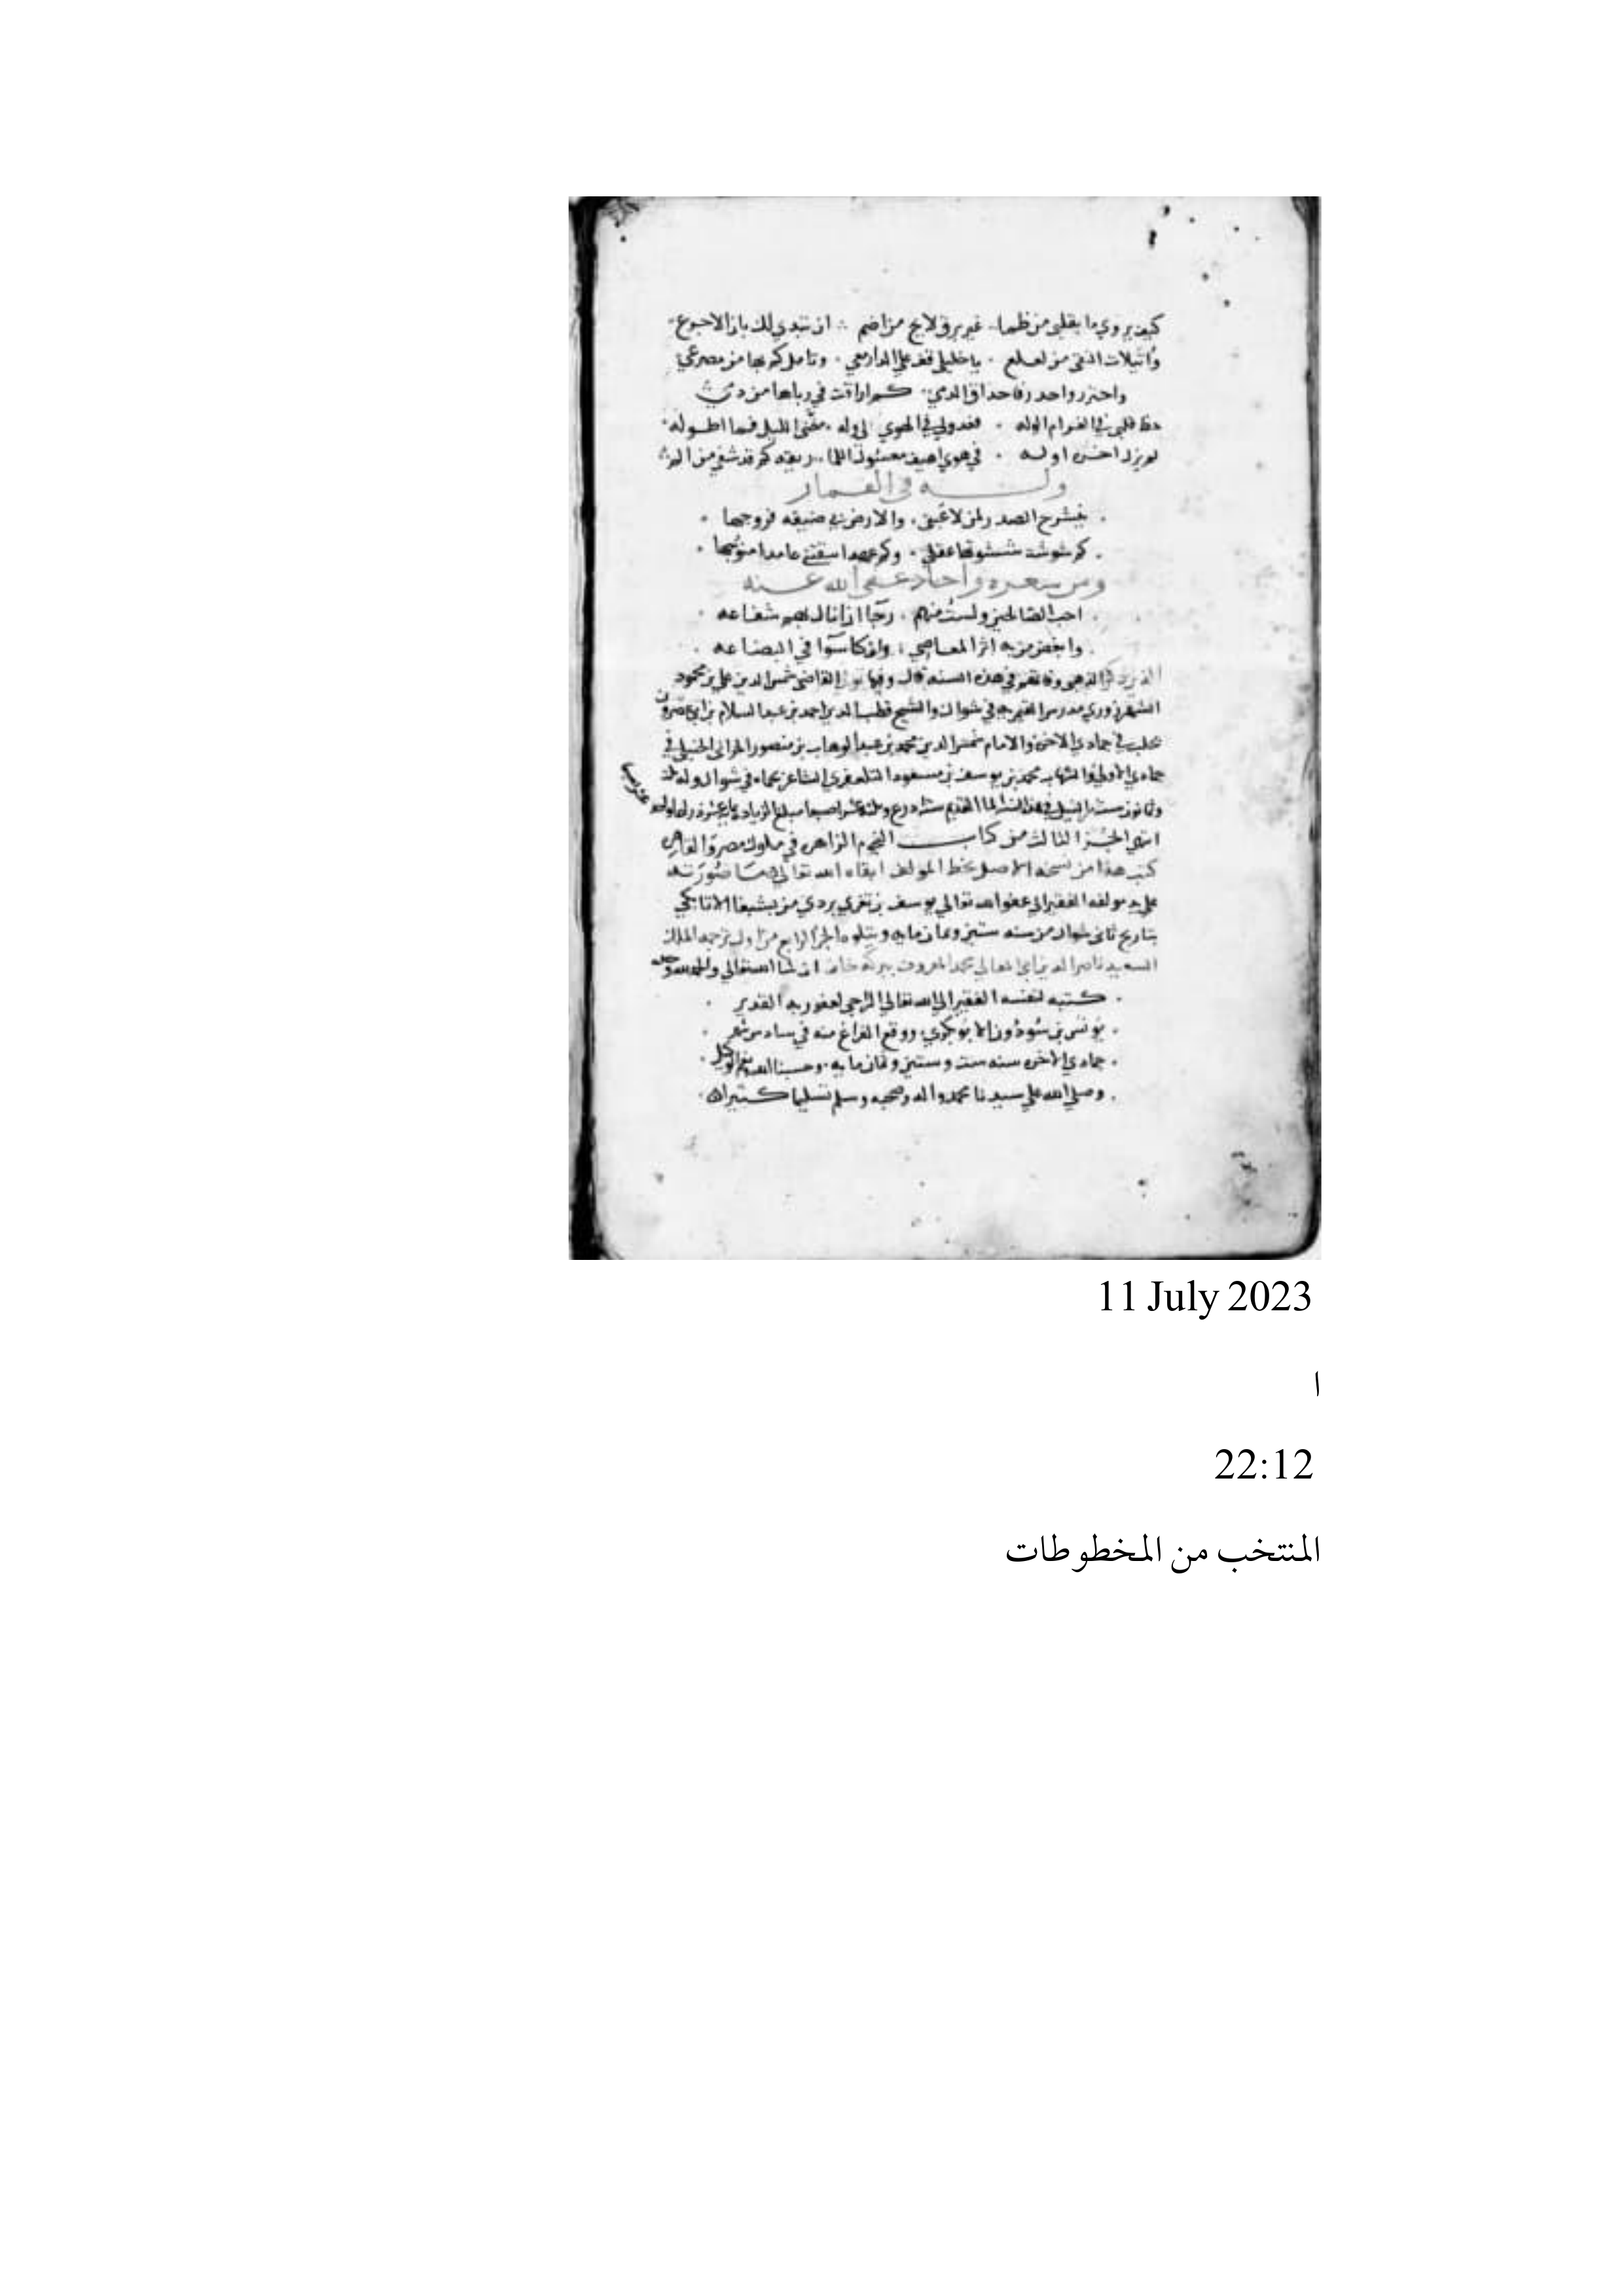 كيف يروي ما بقلبي من ظما غير برق لايح من اضم ان تبدي لك بان الاجرع
واثيلات النقي من لعلع يا خليلي قف علي الدار معي وتامل كم بها من مصرع
واحترز واحذر فاحداق الدمي كم اراقت في رباها من دم
حظ قلبي في الغرام الوله فعذولي في الهوي لي وله
لم يزل اخره اوله في هوي اهيف معسول اللما ريقه كم قد شفي من الم
وله في القمار
ينشرح الصدر لمن لاعبني والارض بي ضيقه فروجها
كم شوشت شيشوشها عقلي وكم عهدا سقتني عامدا
ومن شعره واجاد عفي الله عنه
احب الصالحين ولست منهم رجا ان انال بهم شفاعه
وابغض من به اثر المعاصي وان كنا سوا في البضاعه
الذين ذكر الذهبي وفاتهم في هذه السنه قال وفيها توفي القاضي شمس الدين علي بن محمود
الشهرزوري مدرس القيمريه في شوال والشيخ قطب الدين احمد بن عبد السلام بن ابي عصرون
بحلب في جمادي الاخره والامام شمس الدين محمد بن عبد الوهاب بن منصور الحراني الحنبلي في
جمادي الاولي والشهاب محمد بن يوسف بن مسعود التلعفري الشاعر بحماه في شوال وله
وثمانون سنه امر النيل في هذه السنه الما القديم
انتهي الجزء الثالث من كتاب النجوم الزاهره في ملوك مصر والقاهره
كتب هذا من نسخه الاصل بخط المولف ابقاه الله تعالي ما صورته
علي يد مولفه الفقير الي عفو الله تعالي يوسف بن تغري بردي من يشبغا الاتابكي
بتاريخ ثاني شوال من سنه ستين وثمان مايه ويتلوه الجزء الرابع من اول ترجمه الملك
السعيد ناصر الدين ابي المعالي محمد المعروف ببركه خان ان شا الله تعالي والحمد لله وحده
كتبه لنفسه الفقير الي الله تعالي الراجي لعفو ربه القدير
يونس بن سودون الابوبكري ووقع الفراغ منه في سادس شهر
جمادي الاخره سنه ست وستين وثمان مايه وحسبنا الله ونعم الوكيل
وصلي الله علي سيدنا محمد واله وصحبه وسلم تسليما كثيرا
11 July 2023
ا
22:12
المنتخب من المخطوطات